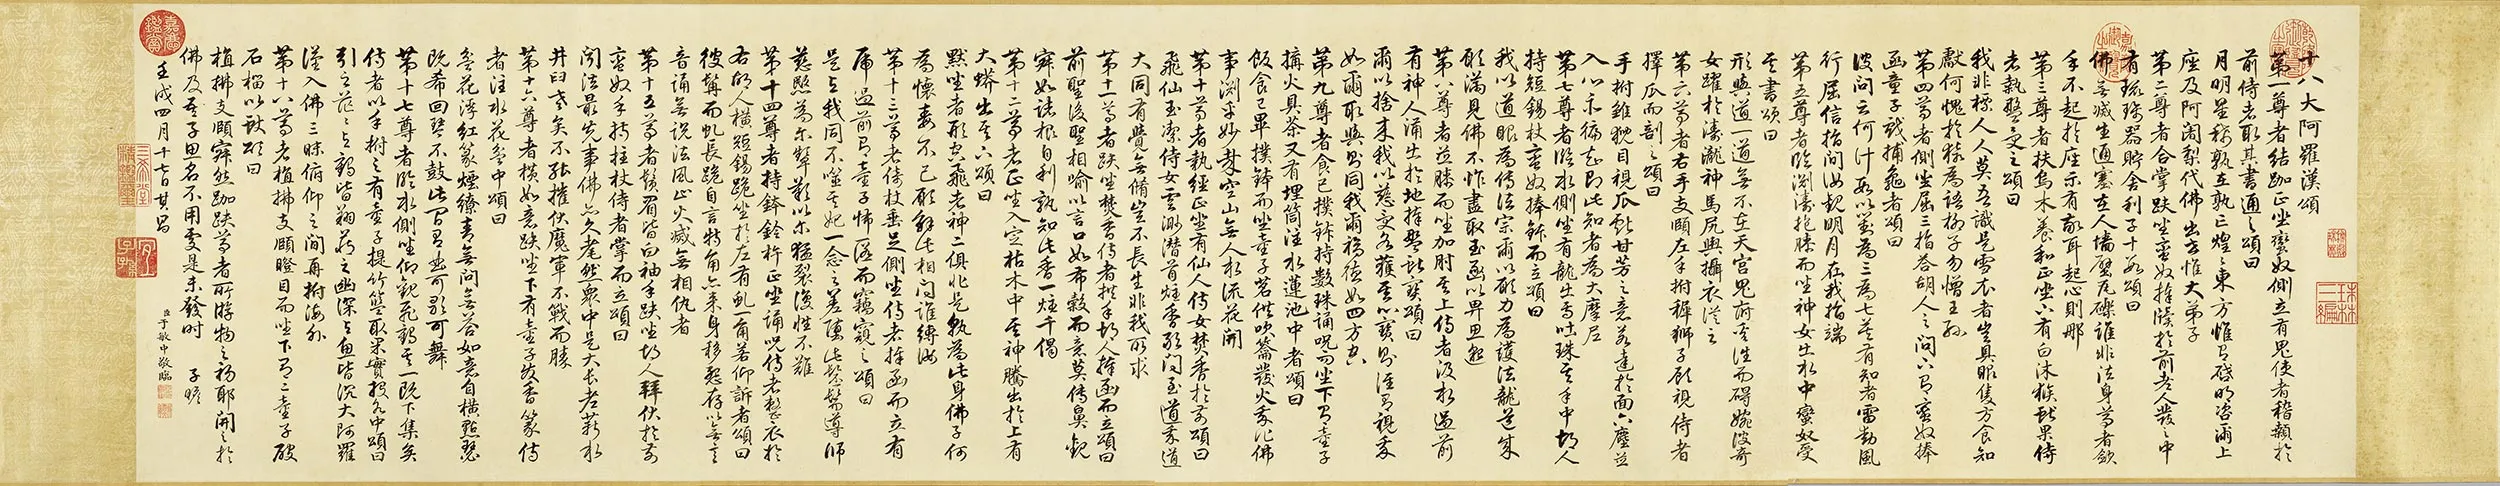 十八大阿羅漢頌
第一尊者結跏正坐蠻奴側立有鬼使者稽顙於
前侍者取其書通之頌曰
月明星稀孰在孰亡煌煌東方惟有啟明咨爾上
座及阿闍黎代佛出世惟大弟子
第二尊者合掌趺坐蠻奴捧牘於前老人發之中
有琉璃器貯舍利子十數頌曰
佛無滅生通塞在人墻壁瓦礫誰非法身尊者斂
手不起於座示有敬耳起心則那
第三尊者扶烏木養和正坐下有白沐猴獻果侍
者執盤受之頌曰
我非標人人莫吾識是雪衣者豈具眼隻方食知
獻何愧於猿為語柳子勿憎王孫
第四尊者側坐屈三指答胡人之問下有蠻奴捧
函童子戲捕龜者頌曰
彼問云何計數以對為三為七莫有知者雷動風
行屈信指間汝觀明月在我指端
第五尊者臨淵濤抱膝而坐神女出水中蠻奴受
其書頌曰
形與道一道無不在天宮鬼府奚往而礙婉彼奇
女躍於濤瀧神馬尻輿攝衣從之
第六尊者右手支頤左手拊穉獅子顧視侍者
擇瓜而剖之頌曰
手拊雛猊目視瓜獻甘芳之意若達於面六塵並
入心亦徧知即此知者為大摩尼
第七尊者臨水側坐有龍出焉吐珠其手中胡人
持短錫杖蠻奴捧鉢而立頌曰
我以道眼為傳法宗爾以願力為護法龍道成
願滿見佛不怍盡取玉函以畀思邈
第八尊者並膝而坐加肘其上侍者汲水過前
有神人涌出於地捧盤獻寶頌曰
爾以捨來我以慈受各獲其心寶則誰有視我
如爾取與則同我爾福德如四方空
第九尊者食已撲鉢持數珠誦呪而坐下有童子
搆火具茶又有埋筒注水蓮池中者頌曰
飯食已畢撲鉢而坐童子茗供吹籥發火我作佛
事淵乎妙哉空山無人水流花開
第十尊者執經正坐有仙人侍女焚香於前頌曰
飛仙玉潔侍女雲渺稽首炷香敢問至道我道
大同有覺無脩豈不長生非我所求
第十一尊者趺坐焚香侍者拱手胡人捧函而立頌曰
前聖後聖相喻以言口如布穀而意莫傳鼻觀
寂如諸根自例孰知此香一炷千偈
第十二尊者正坐入定枯木中其神騰出於上有
大蟒出其下頌曰
默坐者形空飛者神二俱非是孰為此身佛子何
為懷毒不已願解此相問誰縛汝
第十三尊者倚杖垂足側坐侍者捧函而立有
虎過前有童子怖匿而竊窺之頌曰
是與我同不噬其妃一念之差墮此髬髵導師
慈愍為尔顰歎以尔猛裂復性不難
第十四尊者持鉢鈴杵正坐誦呪侍者整衣於
右胡人橫短錫跪坐於左有虬一角若仰訴者頌曰
彼髯而虬長跪自言特角亦來身移怨存以無言
音誦無說法風止火滅無相仇者
第十五尊者鬚眉皆白袖手趺坐胡人拜伏於前
蠻奴手持拄杖侍者掌而立頌曰
聞法最先事佛亦久耄然眾中是大長老薪水
井臼老矣不能摧伏魔軍不戰而勝
第十六尊者橫如意趺坐下有童子發香篆侍
者注水花盆中頌曰
盆花浮紅篆煙繚青無問無答如意自橫點瑟
既希回琴不鼓此間有曲可歌可舞
第十七尊者臨水側坐仰觀飛鶴其一既下集矣
侍者以手拊之有童子提竹籃取果實投水中頌曰
引之茫茫與鶴皆翔藏之幽深與魚皆沉大阿羅
漢入佛三昧俯仰之間再拊海外
第十八尊者植拂支頤瞪目而坐下有二童子破
石榴以獻頌曰
植拂支頤寂然跏趺尊者所游物之初耶聞之於
佛及吾子思名不用處是未發時
子瞻
壬戌四月十七日其昌
臣于敏中敬臨